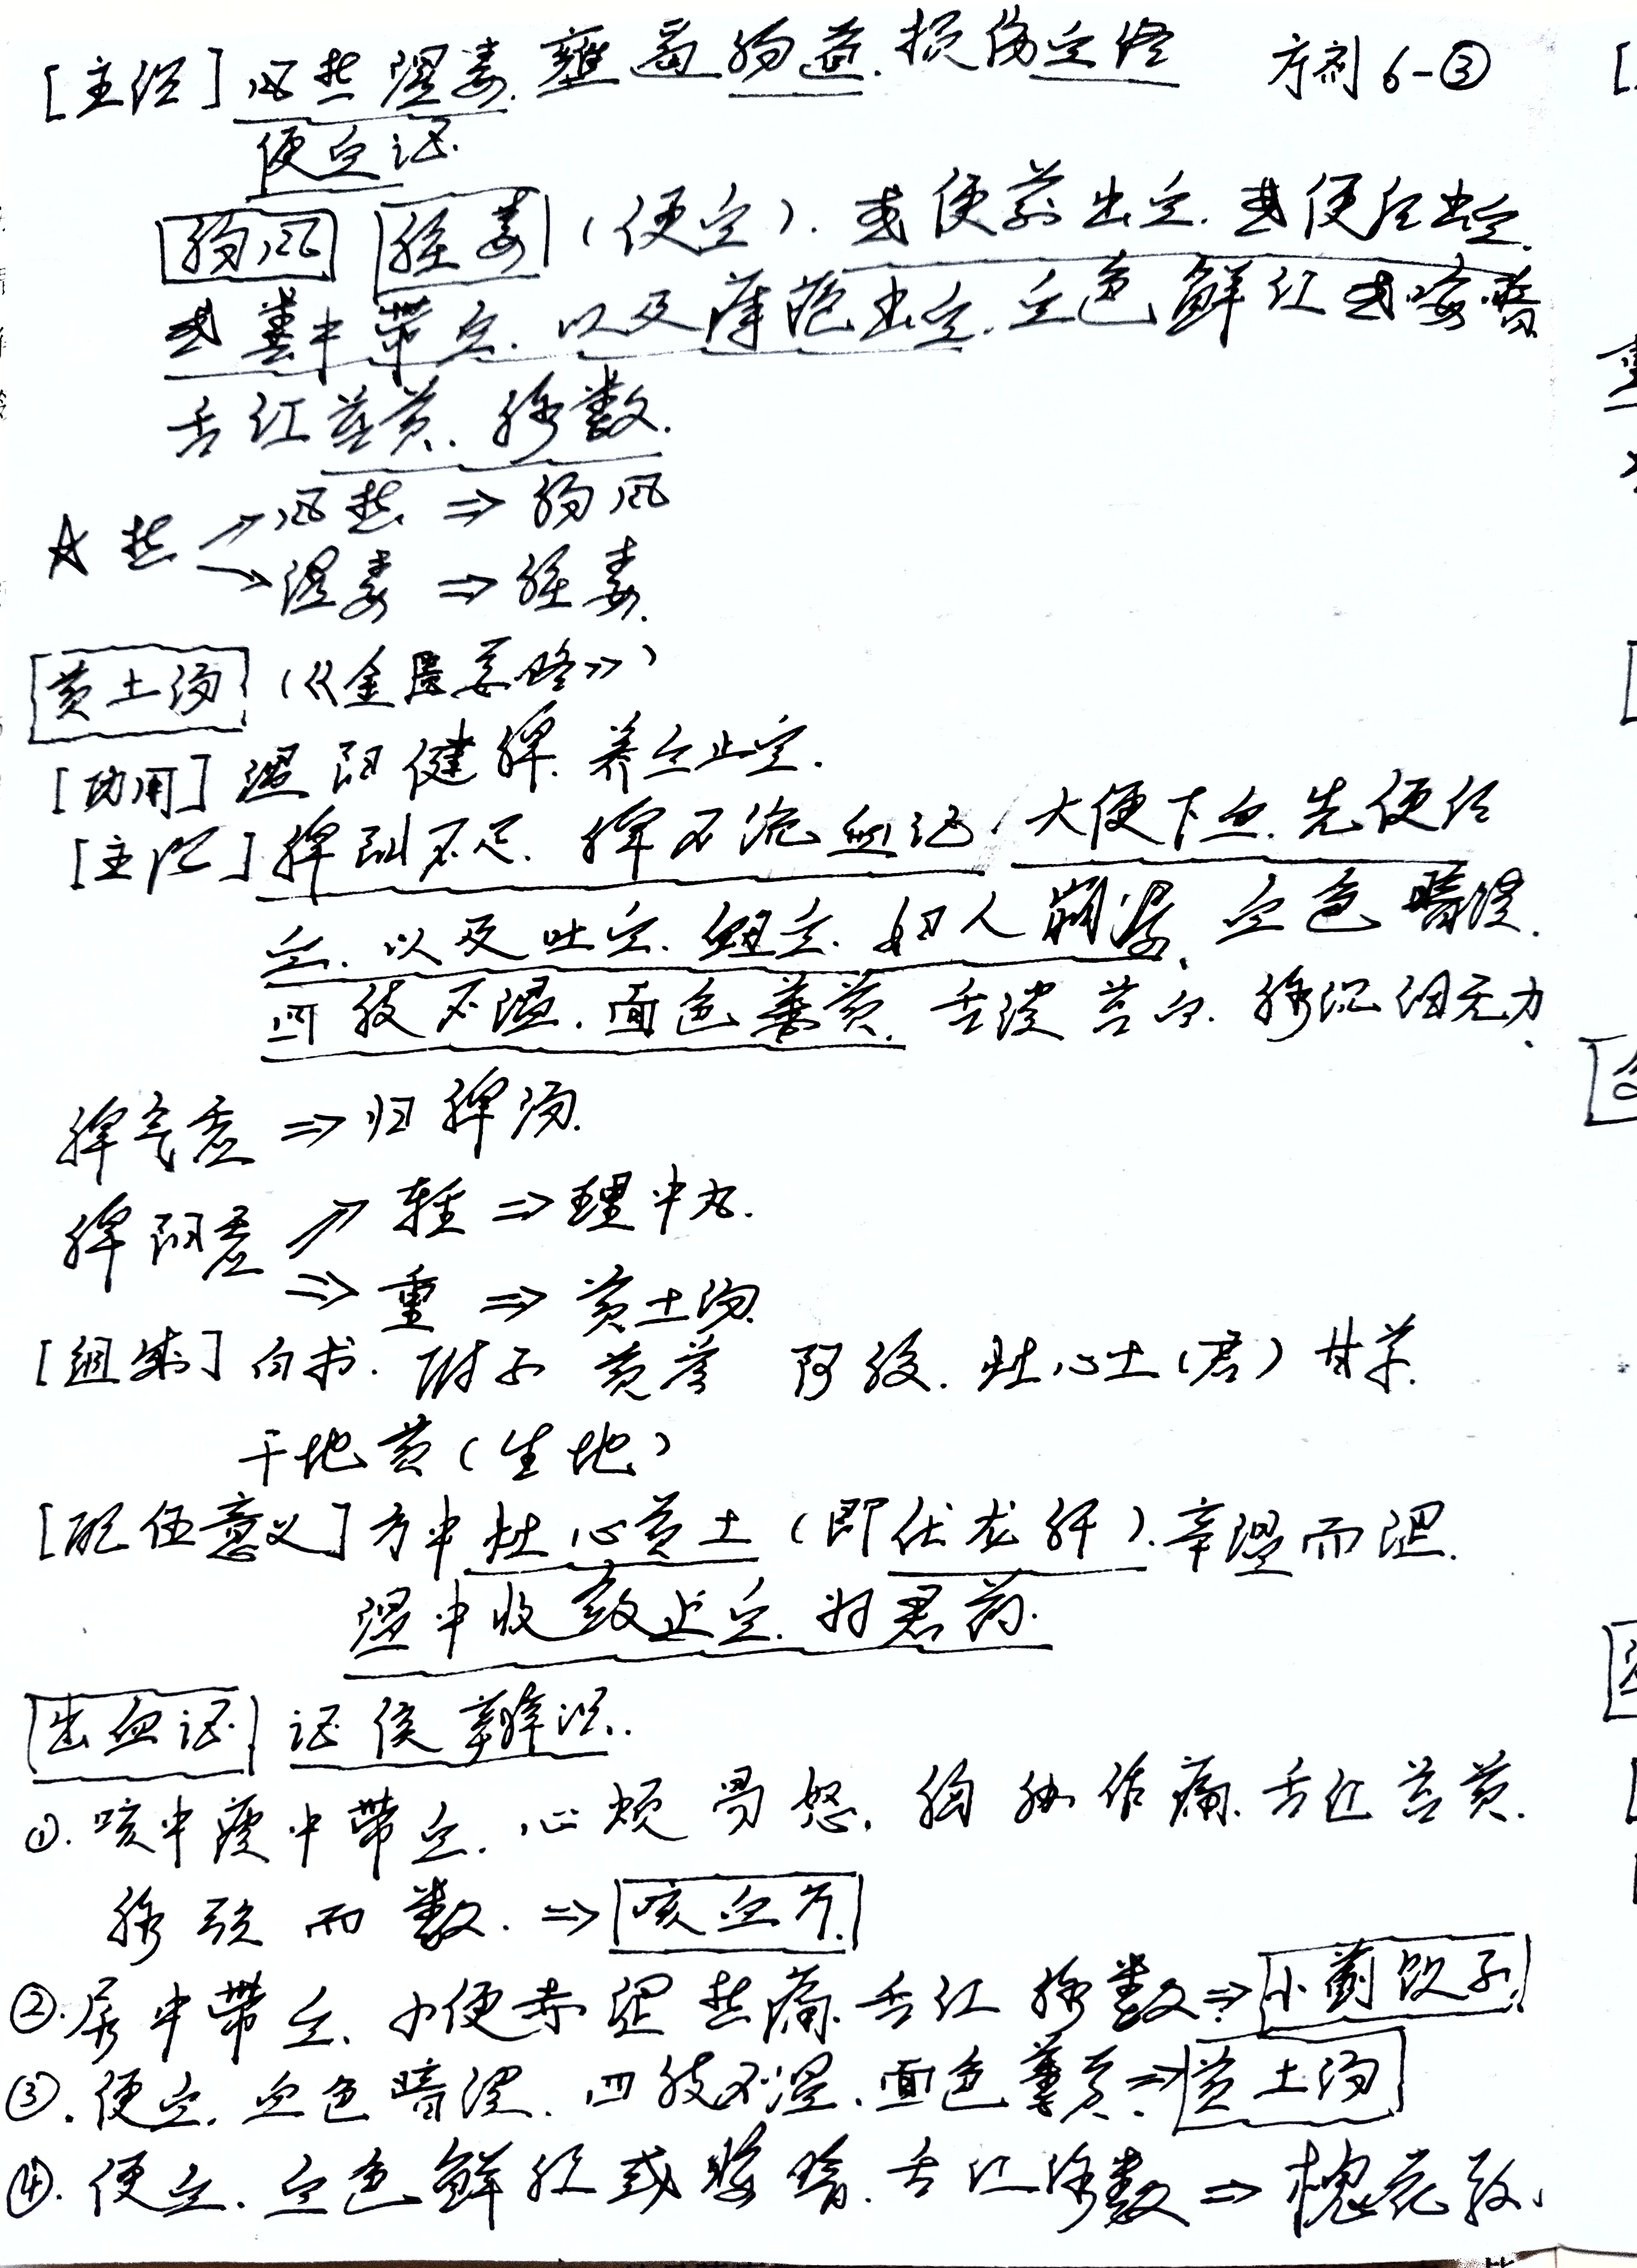 [主治] 风热湿毒. 壅遏肠道. 损伤血络 方剂6-③
便血证.
肠风 脏毒 (便血). 或便前出血. 或便后出血.
或粪中带血. 以及痔疮出血. 血色鲜红或晦暗
舌红苔黄. 脉数.
☆ 热 → 风热 ⇒ 肠风
→ 湿毒 ⇒ 脏毒.
黄土汤 (《金匮要略》)
[功用] 温阳健脾. 养血止血.
[主治] 脾阳不足. 脾不统血证. 大便下血. 先便后
血. 以及吐血. 衄血. 妇人崩漏. 血色暗淡.
四肢不温. 面色萎黄. 舌淡苔白. 脉沉细无力.
脾气虚 ⇒ 归脾汤.
脾阳虚 ⇒ 轻 ⇒ 理中丸.
⇒ 重 ⇒ 黄土汤.
[组成] 白术. 附子 黄芩 阿胶. 灶心土(君) 甘草.
干地黄(生地)
[配伍意义] 方中灶心黄土(即伏龙肝). 辛温而涩.
温中收敛止血. 为君药.
出血证 证候辨识.
①. 咳中痰中带血. 心烦易怒. 胸胁作痛. 舌红苔黄.
脉弦而数. ⇒ 咳血方.
②. 尿中带血. 小便赤涩热痛. 舌红脉数 ⇒ 小蓟饮子.
③. 便血. 血色暗淡. 四肢不温. 面色萎黄. ⇒ 黄土汤
④. 便血. 血色鲜红或晦暗. 舌红脉数 ⇒ 槐花散.